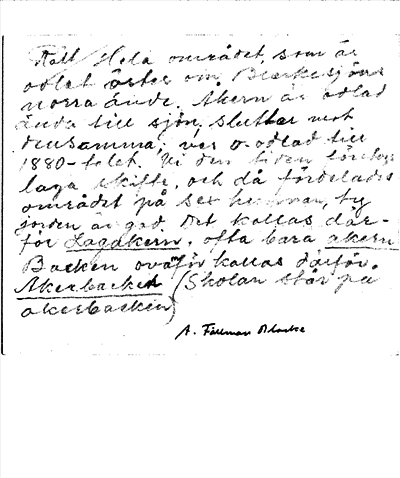 Hela området, som är
odlat öster om Bleckesjöns
norra ände. Åkern är odlad
ända till sjön, sluttar mot
densamma; var o-odlad till
1880-talet. Vid den tiden
laga skifte, och då fördelades
området på sex hemman, ty
jorden är god. Det kallas där-
för Lagåkern, ofta bara åkern
Backen ovanför kallas därför
Åkerbacken (Skolan står på
åkerbacken)
A.